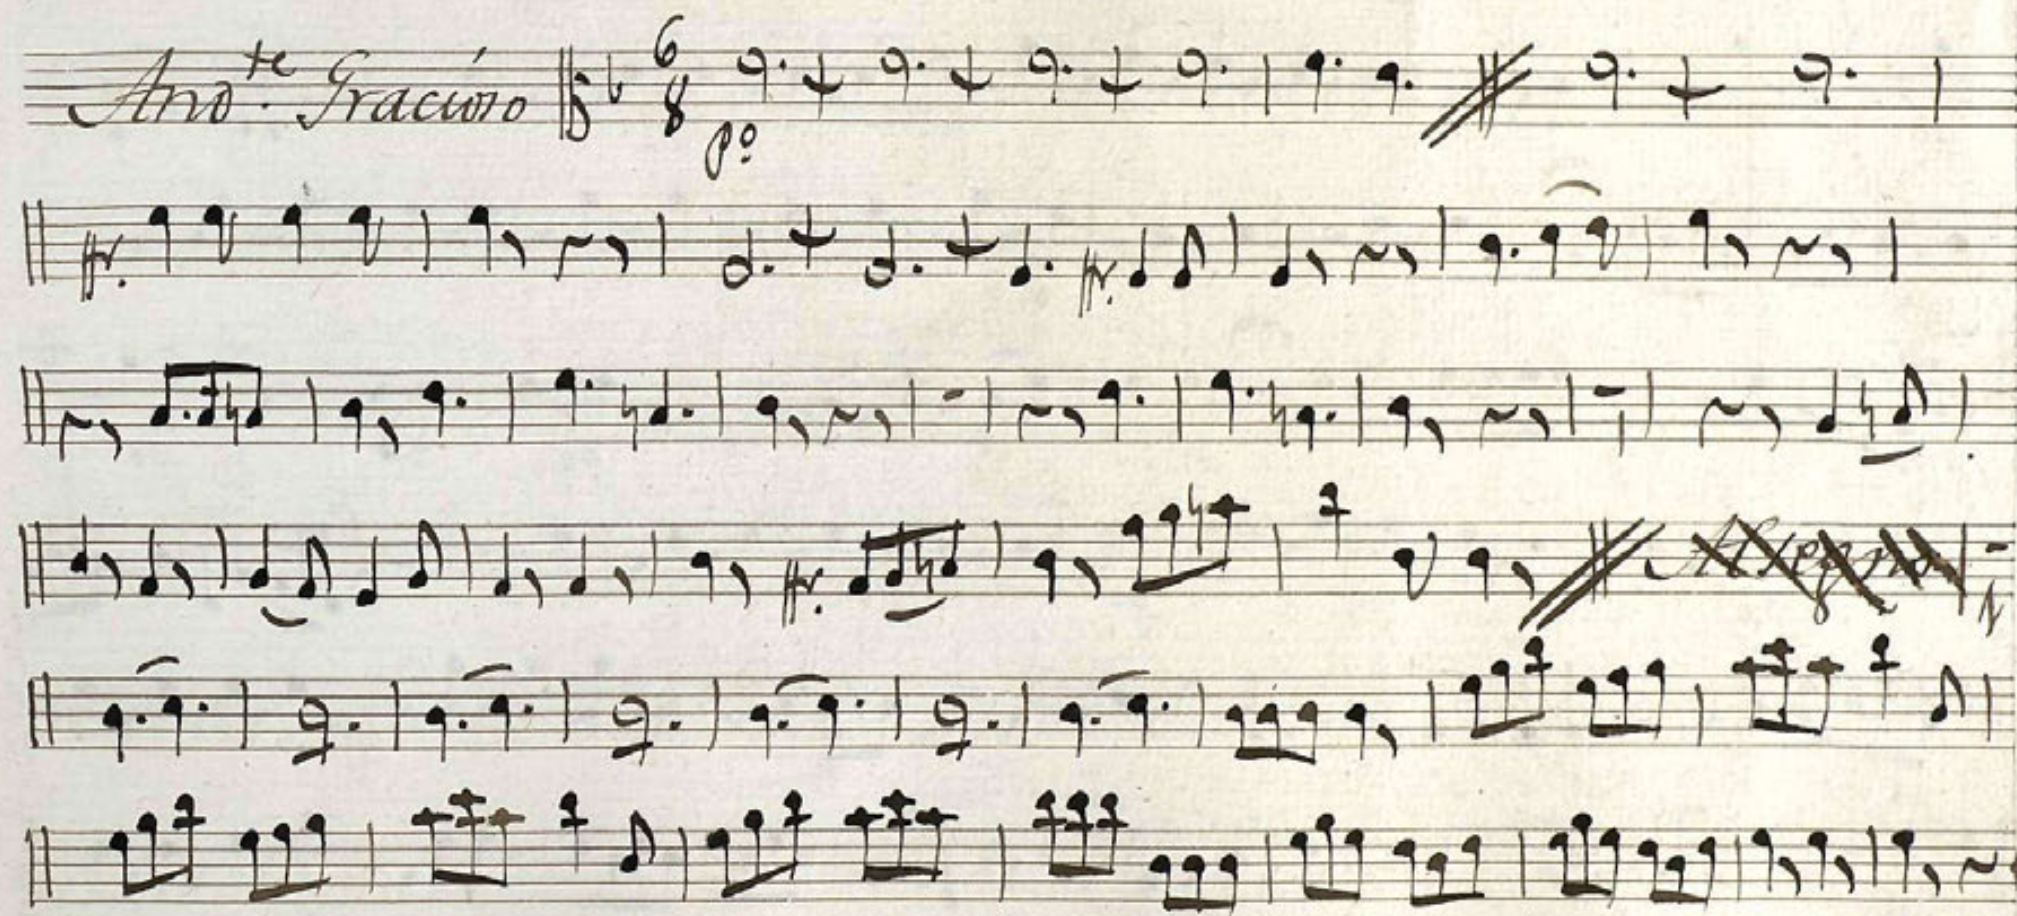 Andte. Gracioso 6
8
po
fr.
fr.
fr. Allegro